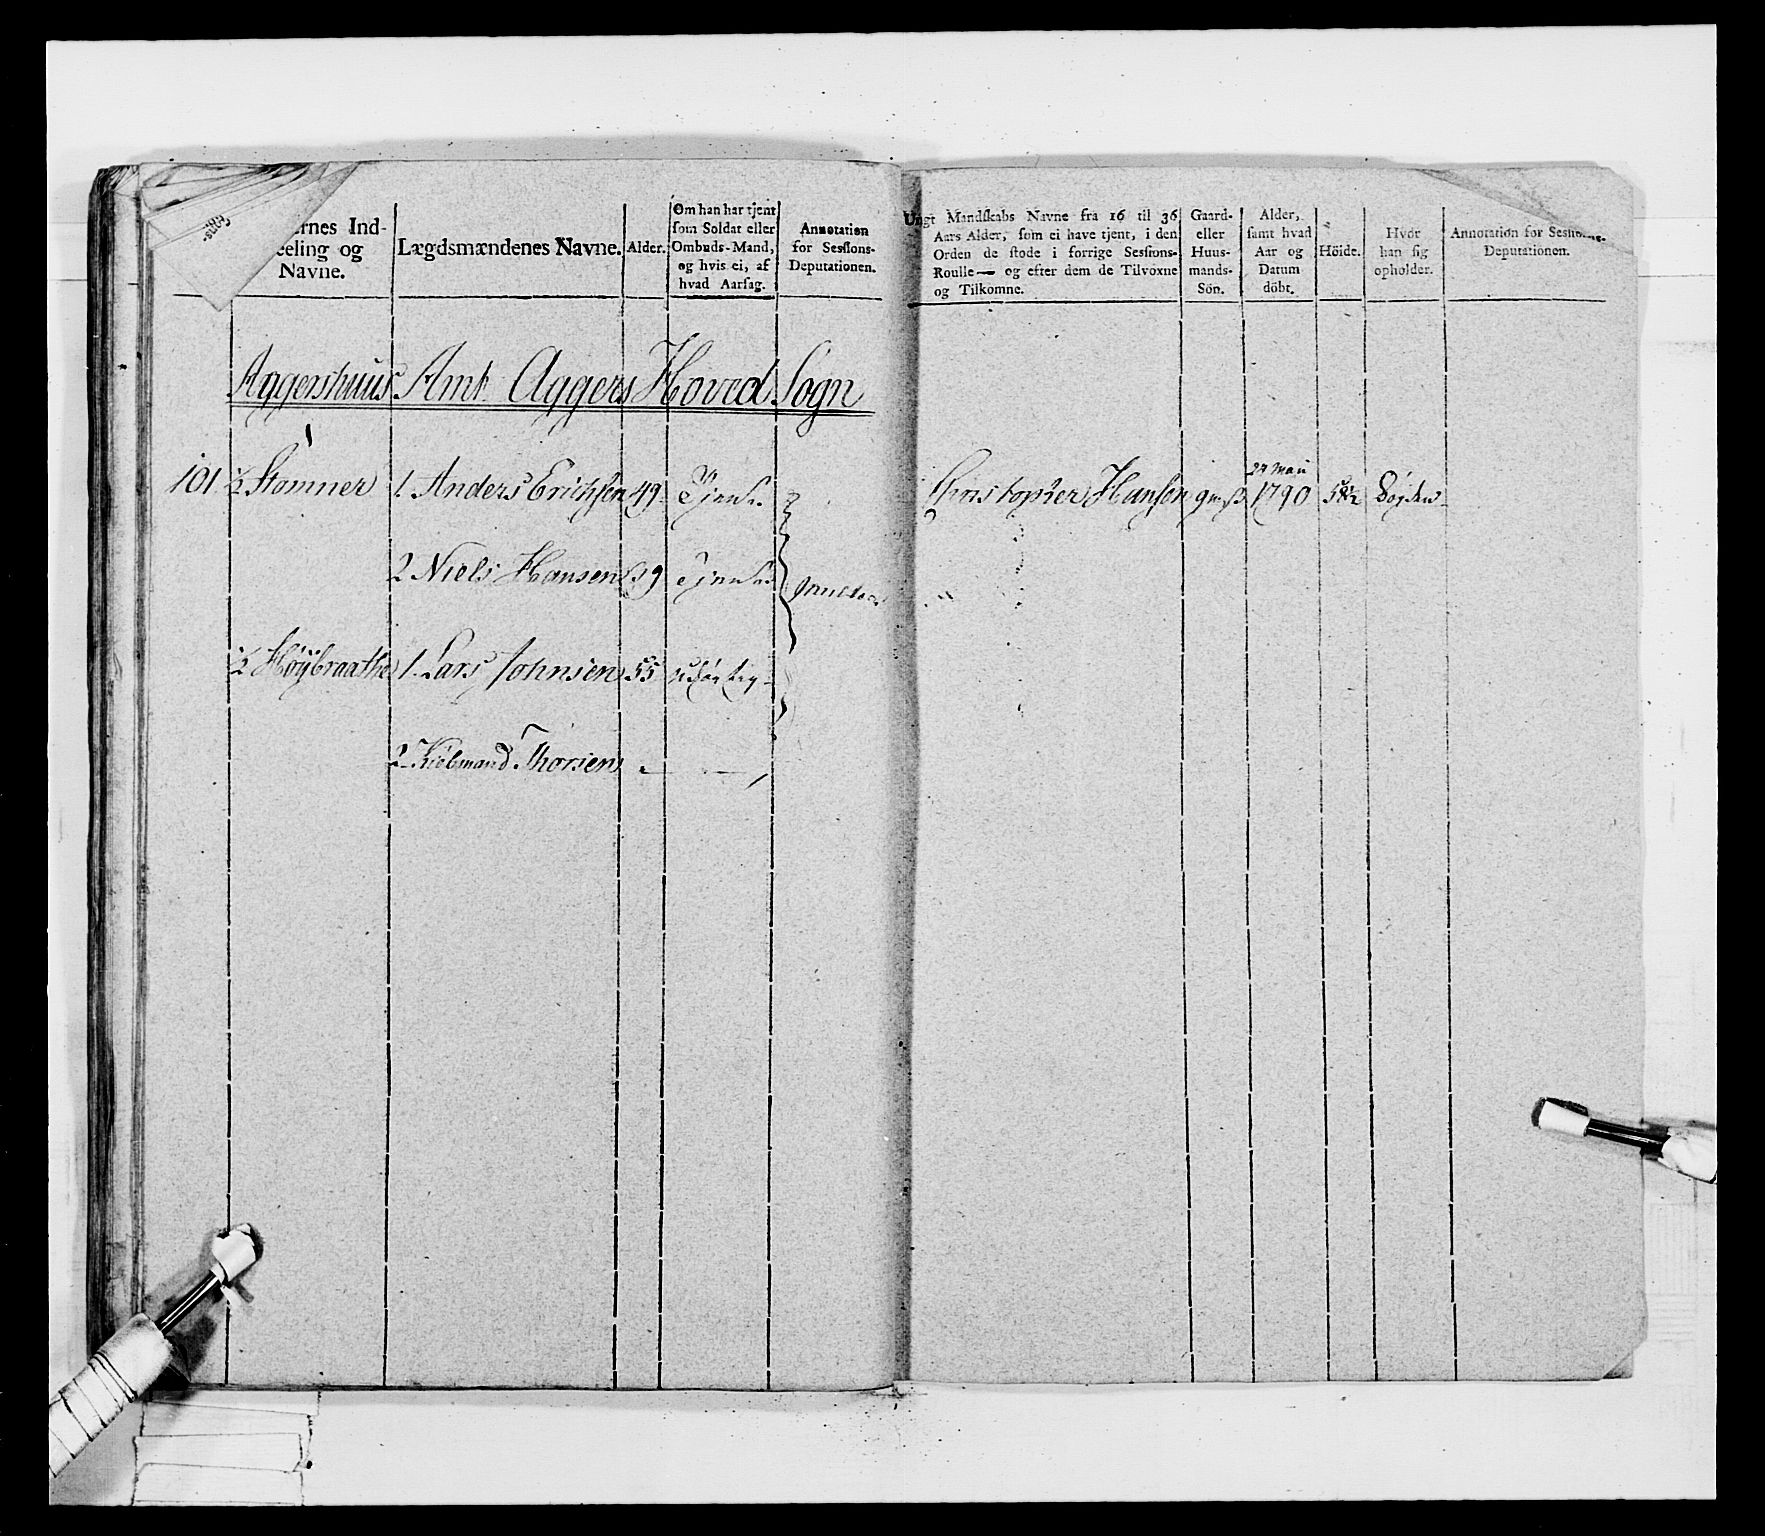 Cons-
ernes Ind-
eeling og
Navne.
Lægdsmændenes Navne.
Alder.
Om han har tjent
som Soldat eller
Ombuds-Mand,
og hvis ei, af
hvad Aarsag.
Annotation
for Sessions-
Deputationen.
Ungt Mandskabs Navne fra 16 til 36
Aars Alder, som ei have tjent, i den
Orden de stode i forrige Sessions-
Roulle — og efter dem de Tilvoxne
og Tilkomne.
Gaard-
eller
Huus-
mands-
Sön.
Alder,
samt hvad
Aar og
Datum
döbt.
Höide.
Hvor
han sig
opholder.
Annotation for Sessions-
Deputationen.
Aggershuus Amt Aggers Hoved Sogn
101 ½ Stamner 1. Anders Erichsen 49 Tient.
2 Niels Hansen 59 Tient.
½ Høybraathe 1. Lars Johnsen 55 udygtig
2 Kiøbmand Thorsen -
Christopher Hansen gmß 24 Mai 1790 Bøgden